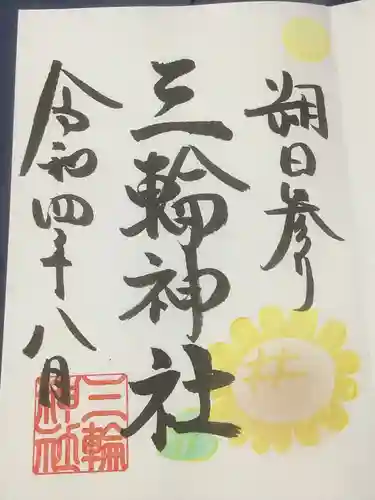 朔日参り
三輪神社
令和四年八月
三輪神社